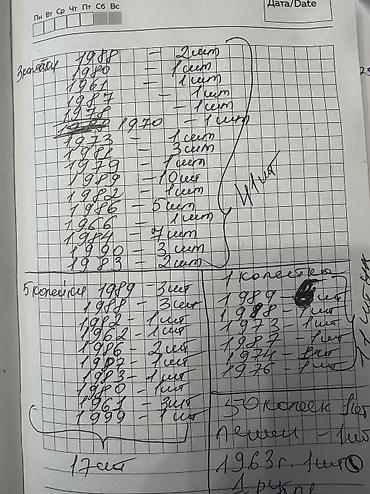 Пн Вт Ср Чт Пт Сб Вс
Дата/Date
3 копейки 1988 - 2 шт
1980 - 1 шт
1961 - 1 шт
1987 - 1 шт
1978 - 1 шт
1970 - 1 шт
1973 - 1 шт
1981 - 3 шт
1979 - 1 шт
1989 - 10 шт
1982 - 1 шт
1986 - 5 шт
1966 - 1 шт
1984 - 7 шт
1990 - 3 шт
1983 - 2 шт
41 шт
5 копейки 1989 - 3 шт
1988 - 3 шт
1982 - 1 шт
1962 - 1 шт
1986 - 2 шт
1987 - 1 шт
1983 - 1 шт
1980 - 1 шт
1961 - 3 шт
1999 - 1 шт
17 шт
1 копейка
1989 - 6 шт
1988 - 1 шт
1973 - 1 шт
1987 - 1 шт
1974 - 1 шт
1976 - 1 шт
11 шт
50 копеек 1 шт
Ленин - 1 шт
1963 г. 1 шт
1 рубль